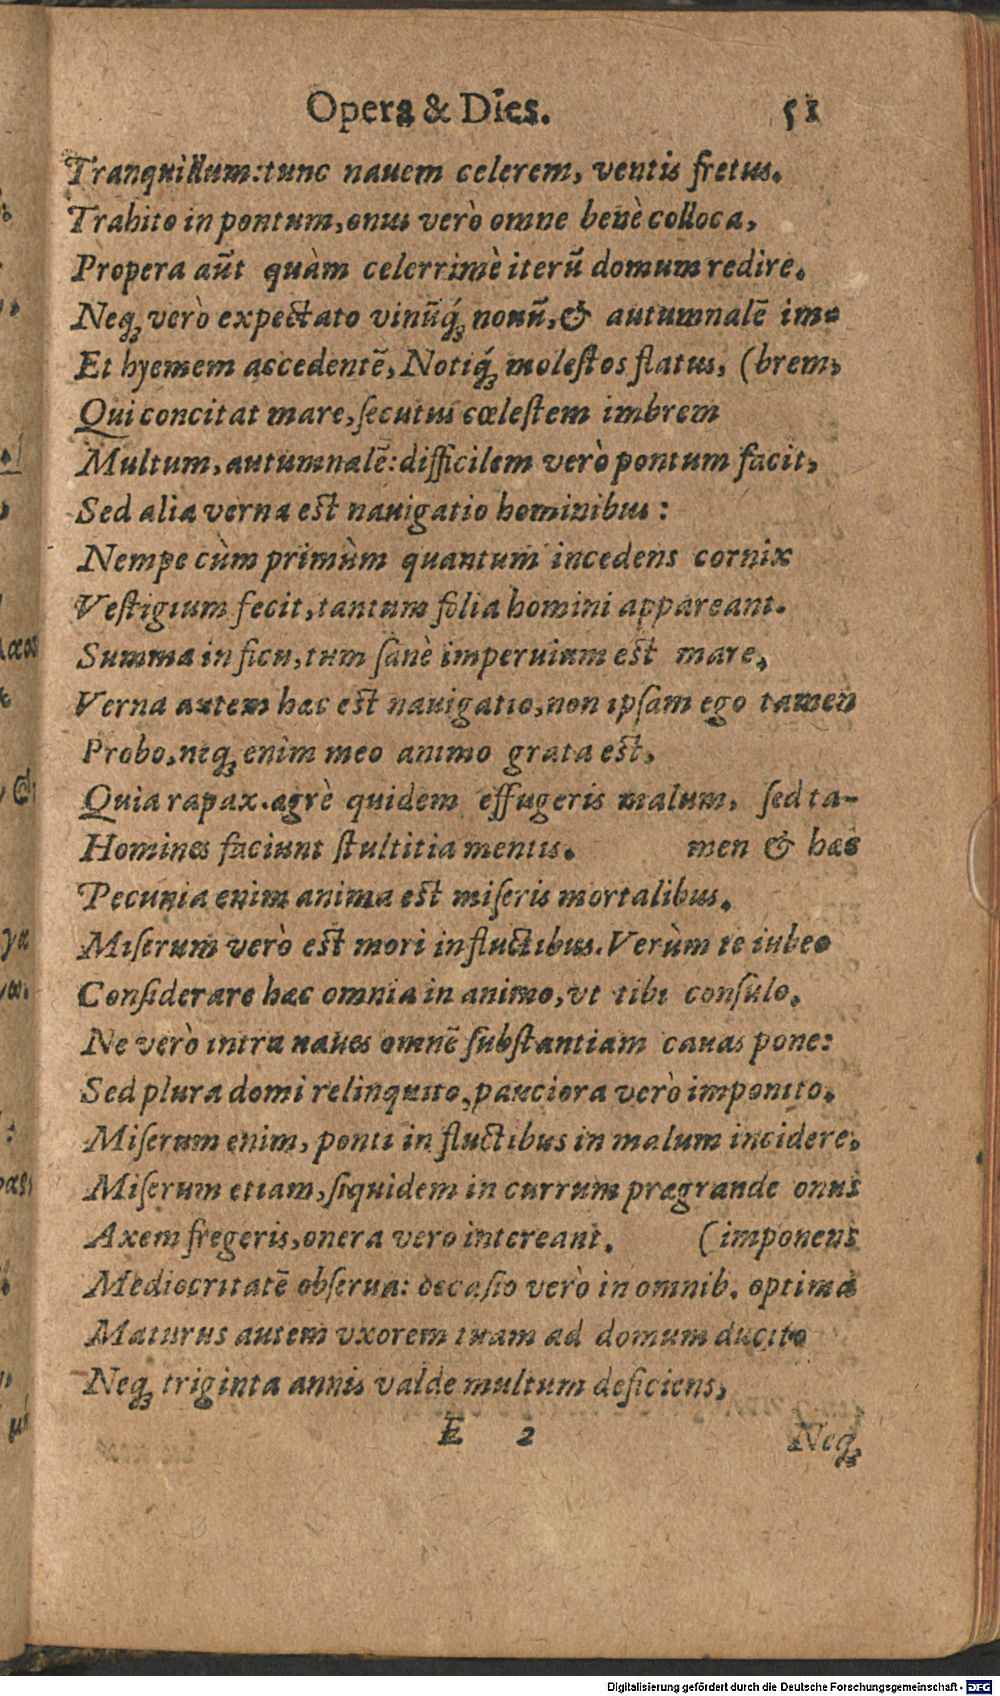 Opera & Dies. 51
Tranquillum: tunc nauem celerem, ventis fretus.
Trahito in pontum, onus verò omne benè colloca,
Propera aũt quàm celerrimè iterũ domum redire.
Neq; verò expectato vinũq́; nouũ, & autumnalẽ im-
Et hyemem accedentẽ, Notiq́; molestos flatus, (brem,
Qui concitat mare, secutus cœlestem imbrem
Multum, autumnalẽ: difficilem verò pontum facit,
Sed alia verna est nauigatio hominibus:
Nempe cùm primùm quantum incedens cornix
Vestigium fecit, tantum folia homini appareant.
Summa in ficu, tum sanè imperuium est mare,
Verna autem hac est nauigatio, non ipsam ego tamen
Probo, neq; enim meo animo grata est,
Quia rapax. agrè quidem effugeris malum, sed ta-
Homines faciunt stultitia mentis. men & hac
Pecunia enim anima est miseris mortalibus.
Miserum verò est mori in fluctibus. Verùm te iubeo
Considerare hac omnia in animo, vt tibi consulo.
Ne verò intra naues omnẽ substantiam cauas pone:
Sed plura domi relinquito, pauciora verò imponito.
Miserum enim, ponti in fluctibus in malum incidere,
Miserum etiam, siquidem in currum prægrande onus
Axem fregeris, onera vero intereant. (imponens
Mediocritatẽ obserua: occasio verò in omnib. optima
Maturus autem vxorem tuam ad domum ducito
Neq; triginta annis valde multum deficiens,
E 2 Neq;
Digitalisierung gefördert durch die Deutsche Forschungsgemeinschaft - DFG